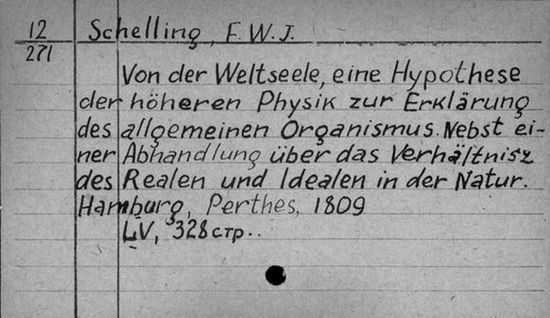 12
271
Schelling, F. W. J.
Von der Weltseele, eine Hypothese
der höheren Physik zur Erklärung
des allgemeinen Organismus. Nebst ei-
ner Abhandlung über das Verhältnisz
des Realen und Idealen in der Natur.
Hamburg, Perthes, 1809
LV, 328 стр..